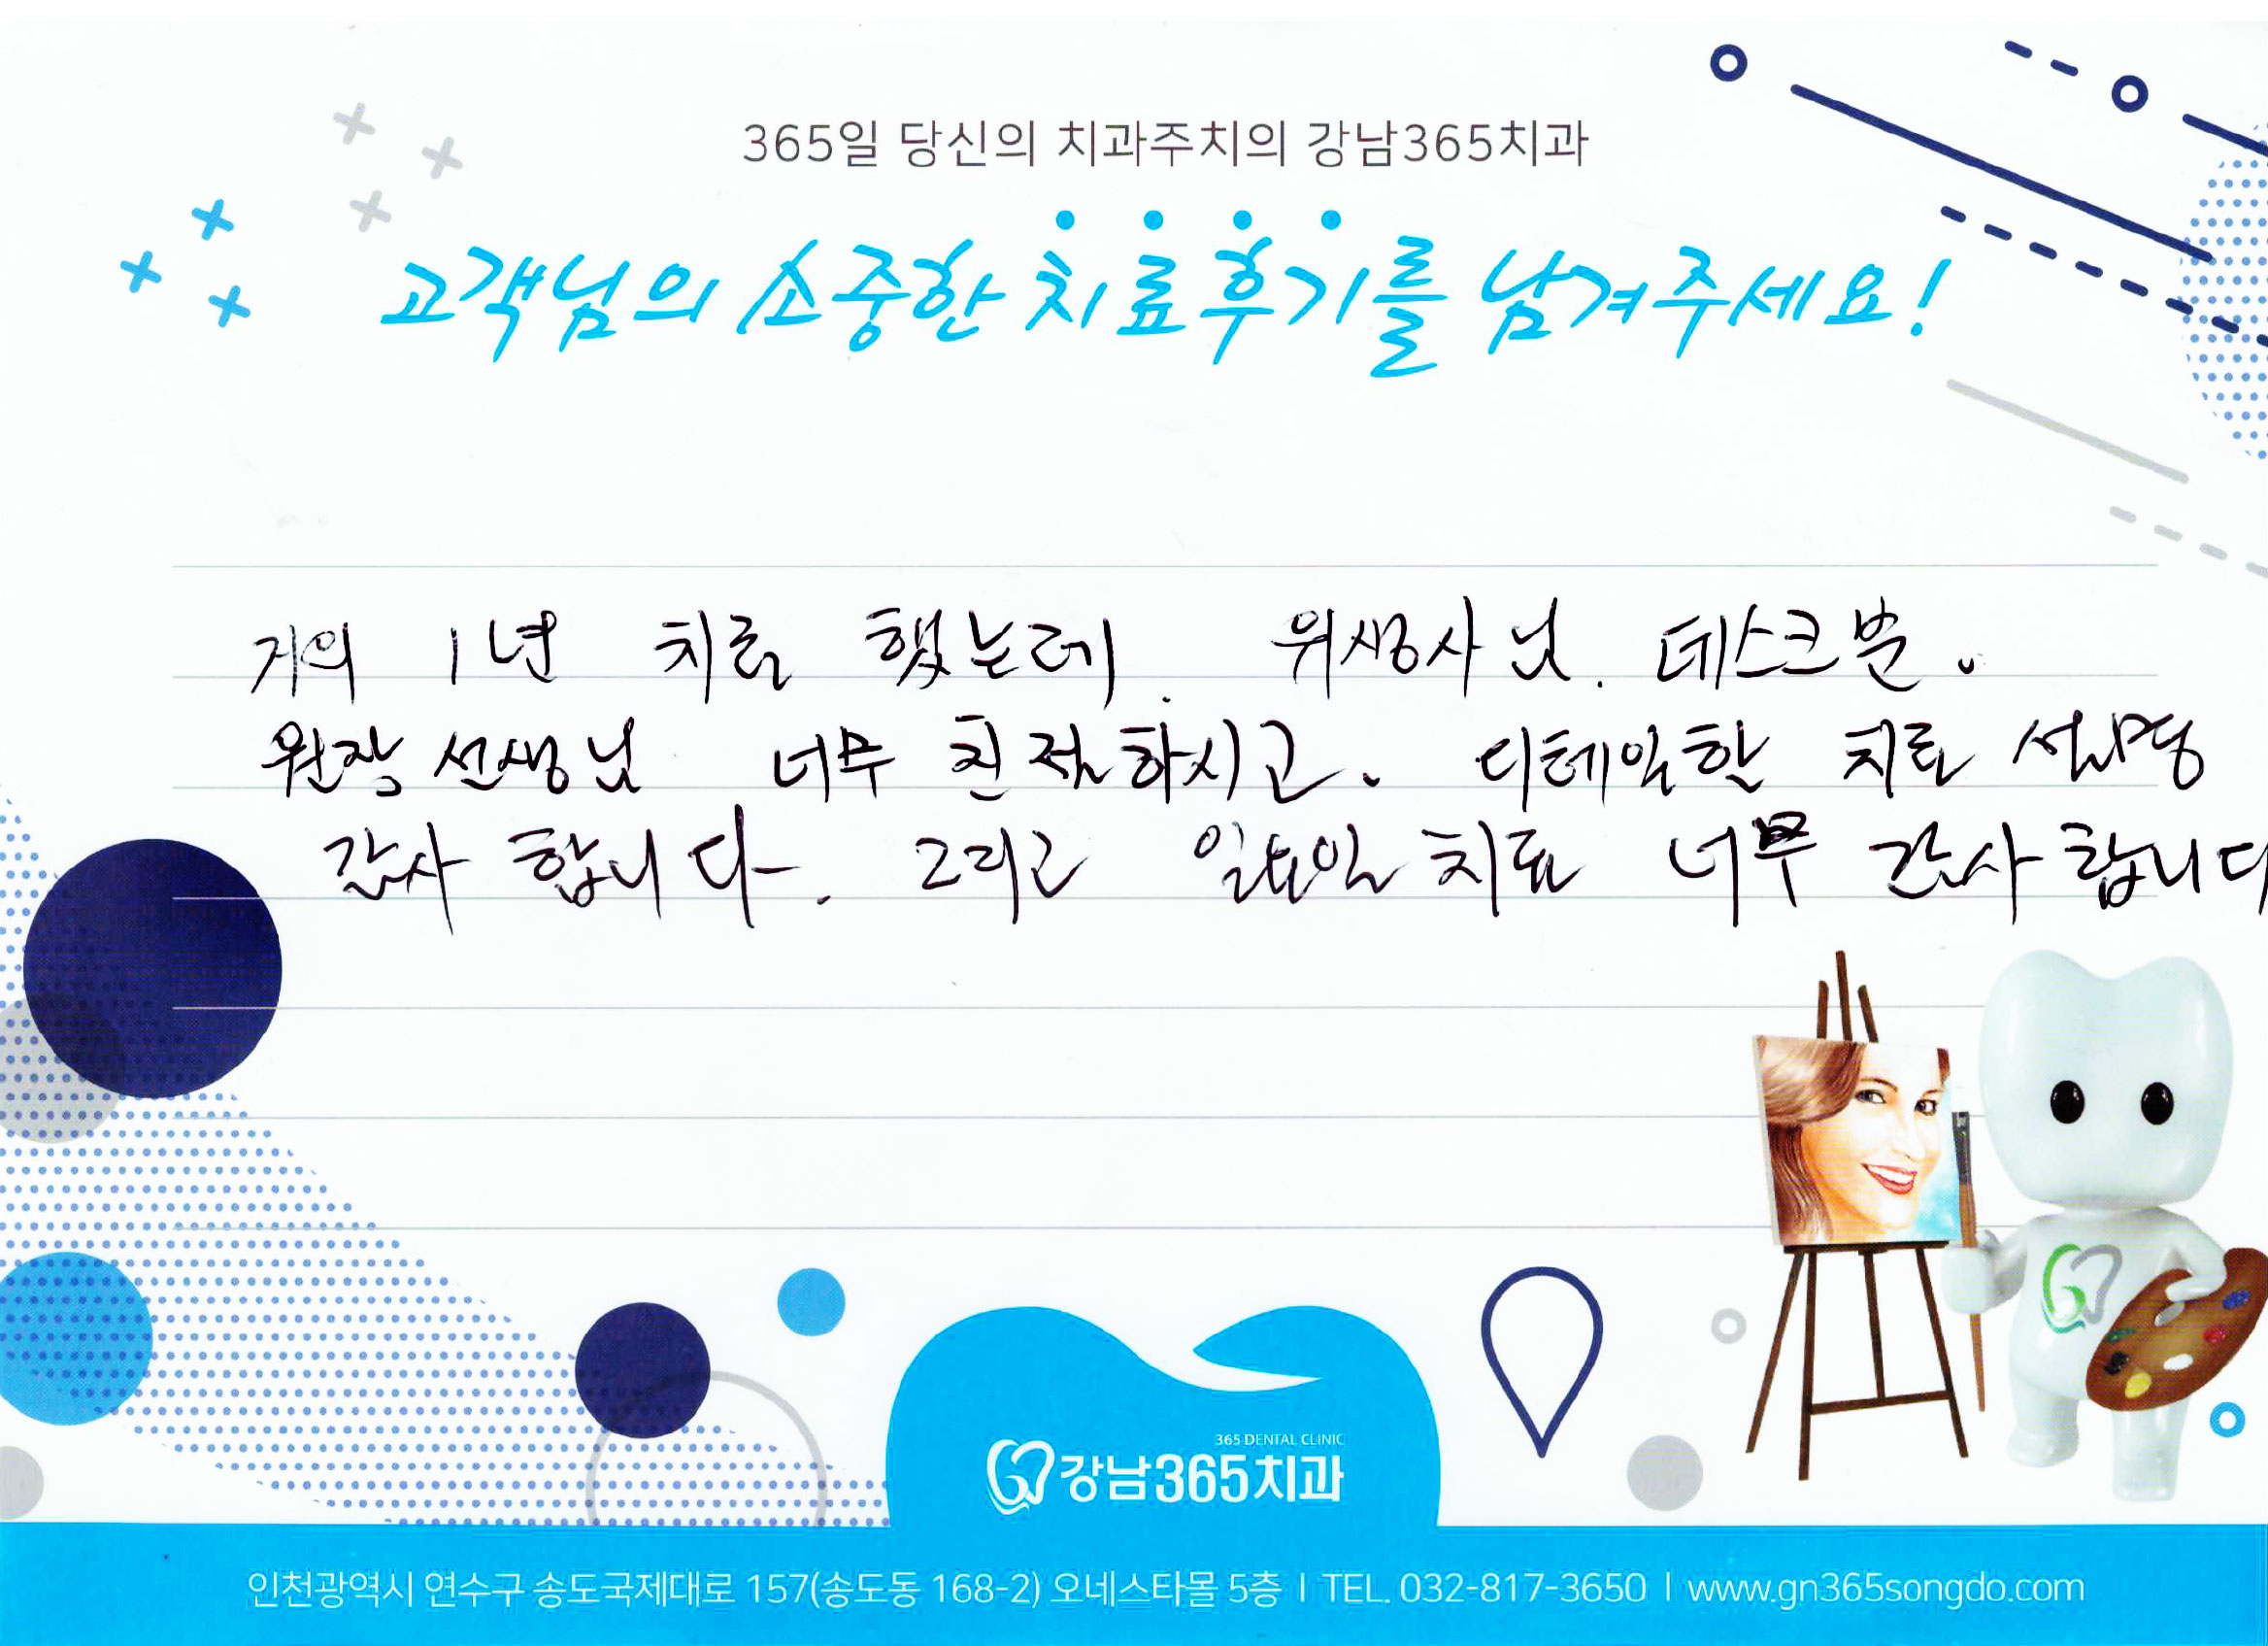 365일 당신의 치과주치의 강남365치과
고객님의 소중한 치료후기를 남겨주세요!
거의 1년 치료 했는데. 위생사님. 데스크분.
원장선생님 너무 친절하시고. 디테일한 치료 설명
감사 합니다. 그리고 일요일 치료 너무 감사 합니다
365 DENTAL CLINIC
강남365치과
인천광역시 연수구 송도국제대로 157(송도동 168-2) 오네스타몰 5층 | TEL. 032-817-3650 | www.gn365songdo.com